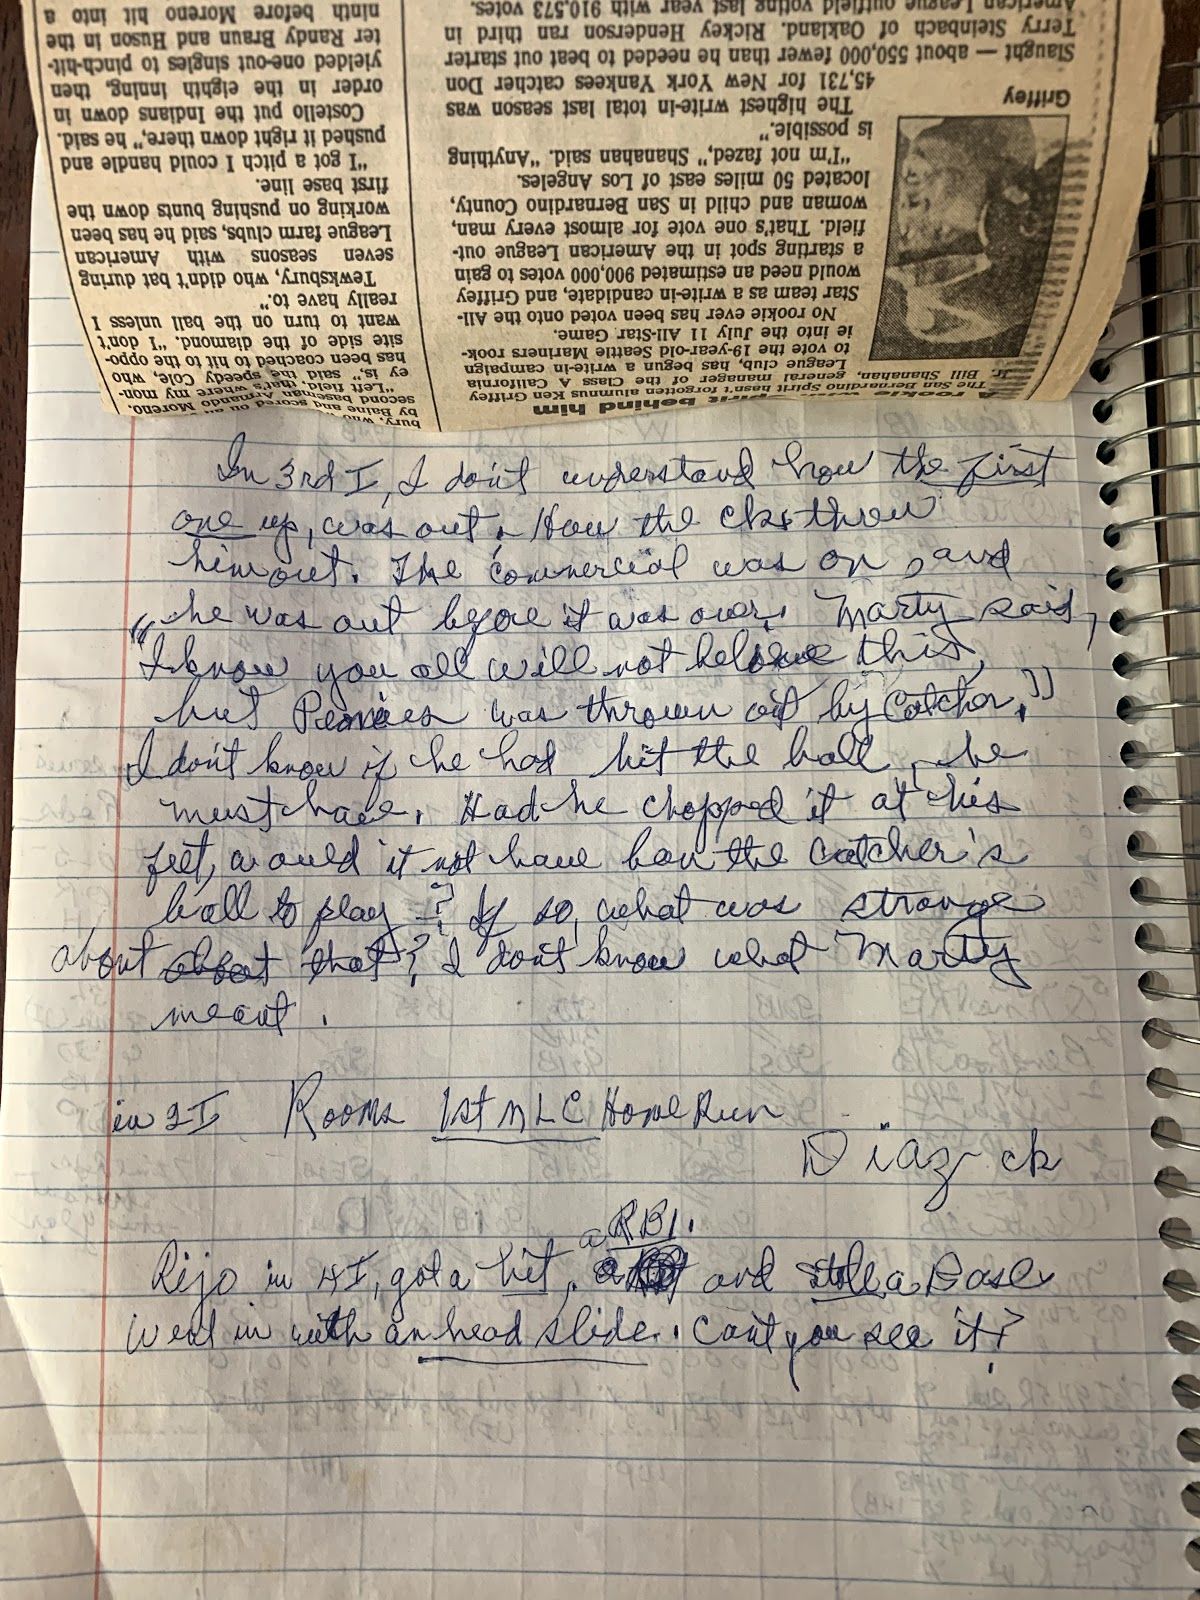 A rookie with Spirit behind him
The San Bernardino Spirit hasn't forgotten alumnus Ken Griffey
Jr. Bill Shanahan, general manager of the Class A California
League club, has begun a write-in campaign
to vote the 19-year-old Seattle Mariners rook-
ie into the July 11 All-Star Game.
No rookie ever has been voted onto the All-
Star team as a write-in candidate, and Griffey
would need an estimated 900,000 votes to gain
a starting spot in the American League out-
field. That's one vote for almost every man,
woman and child in San Bernardino County,
located 50 miles east of Los Angeles.
"I'm not fazed," Shanahan said. "Anything
is possible."
The highest write-in total last season was
45,731 for New York Yankees catcher Don
Slaught — about 550,000 fewer than he needed to beat out starter
Terry Steinbach of Oakland. Rickey Henderson ran third in
American League outfield voting last year with 910,573 votes.
Griffey
bury, who
by Baine and scored on
second baseman Armando Moreno.
"Left field, that's where my mon-
ey is," said the speedy Cole, who
has been coached to hit to the oppo-
site side of the diamond. "I don't
want to turn on the ball unless I
really have to."
Tewksbury, who didn't bat during
seven seasons with American
League farm clubs, said he has been
working on pushing bunts down the
first base line.
"I got a pitch I could handle and
pushed it right down there," he said.
Costello put the Indians down in
order in the eighth inning, then
yielded one-out singles to pinch-hit-
ter Randy Braun and Huson in the
ninth before Moreno hit into a
In 3rd I, I don't understand how the first
one up, was out. How the cks threw
him out. The commercial was on, and
he was out before it was over. Marty said,
"I know you all will not believe this,
but was thrown out by Catcher."
I don't know if he had hit the ball, he
must have. Had he chopped it at his
feet, would it not have been the catcher's
ball to play? If so, what was strange
about that? I don't know what Marty
meant.
in 2I Rooms 1st MLC Home Run
Diaz ck
Rijo in 4I, got a hit, a RBI. and stole a Base
Went in with an head slide. Can't you see it?